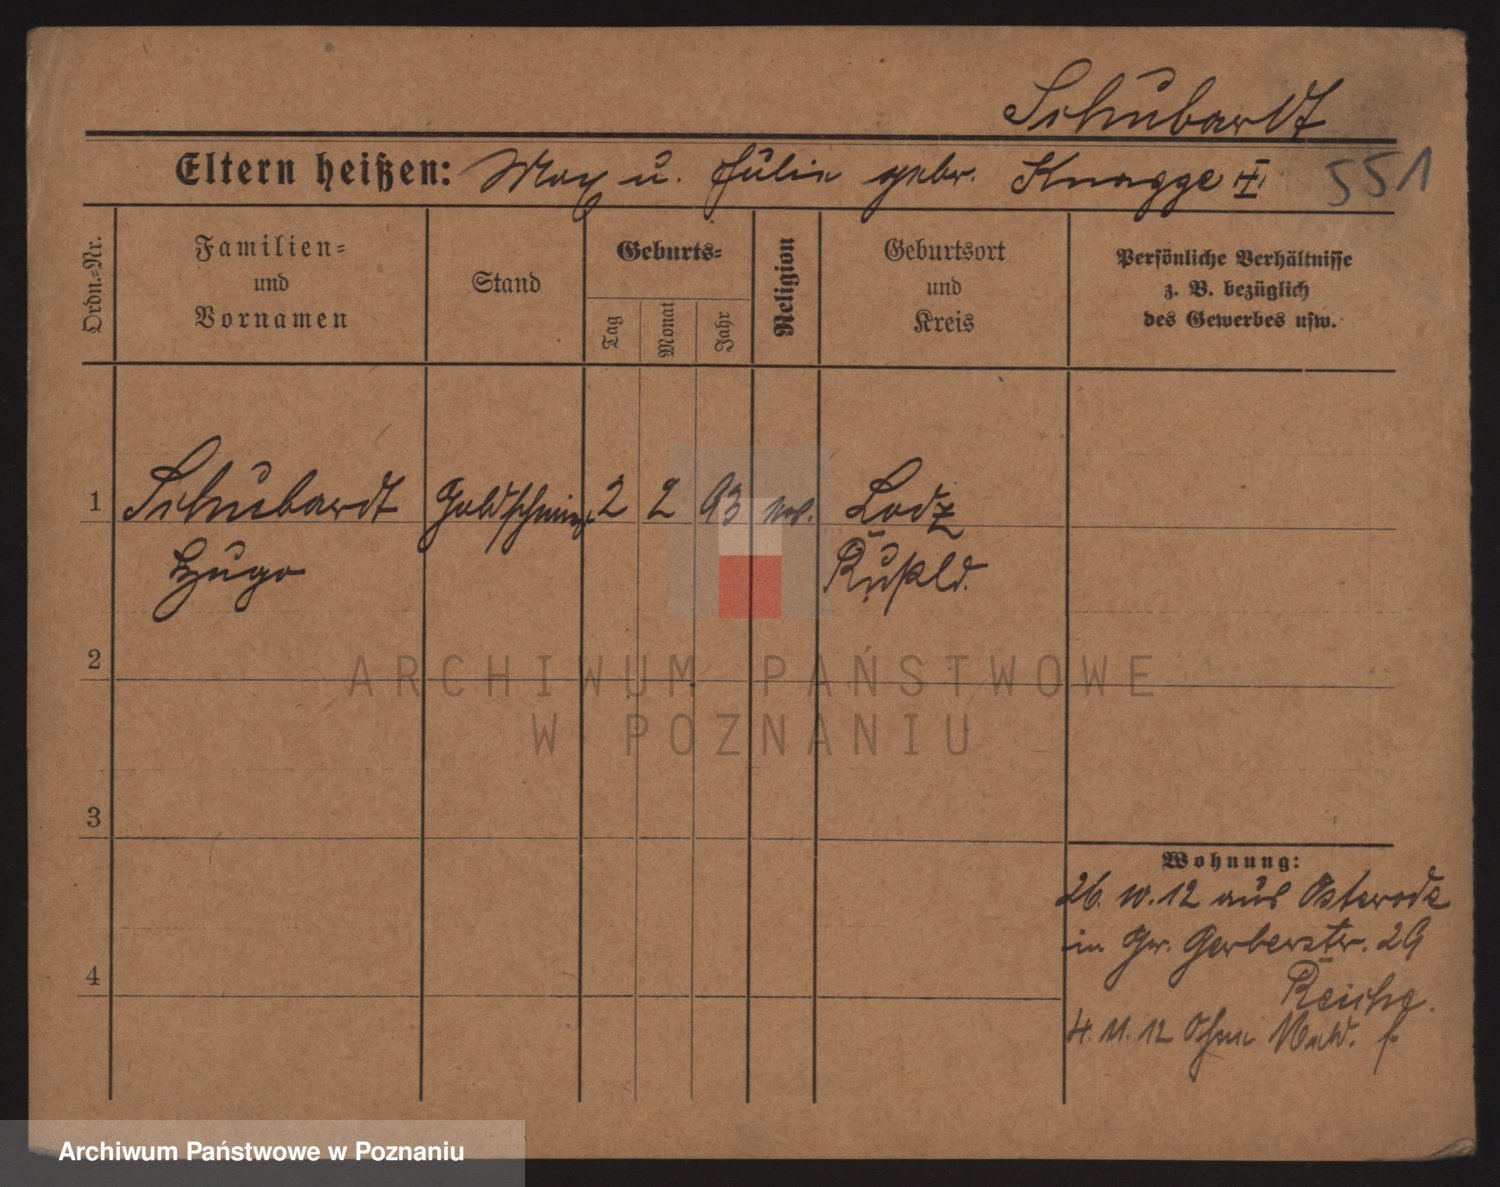 Schubardt
Eltern heißen: Max u. Julie gebr. Knagge
551
Ordn.=Nr.
Familien=
und
Vornamen
Stand
Geburts=
Tag
Monat
Jahr
Religion
Geburtsort
und
Kreis
Persönliche Verhältnisse
z. B. bezüglich
des Gewerbes usw.
1 Schubardt Goldschmied 2 2 93 Lodz
Hugo Rußld.
2
ARCHIWUM PAŃSTWOWE
W POZNANIU
3
4
Wohnung:
26. 10. 12 aus Osterode
in Gr. Gerberstr. 29
4. 11. 12 Ohne
Archiwum Państwowe w Poznaniu